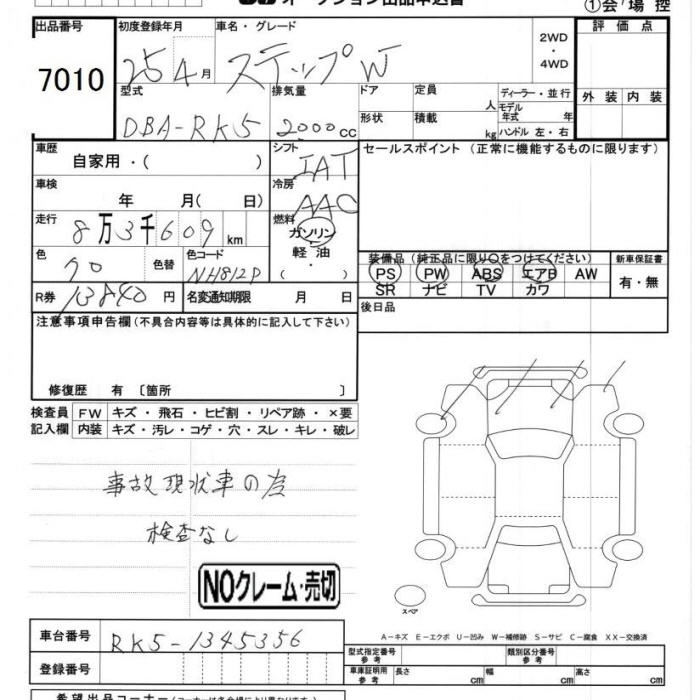 オークション出品申込書
①会場 控
出品番号 7010
初度登録年月 25 4月
車名・グレード ステップW
2WD・4WD
評価点
型式 DBA-RK5
排気量 2000cc
ドア 形状
定員 人
積載 kg
ディーラー・並行
モデル年式 年
ハンドル 左・右
外装 内装
車歴 自家用・( )
シフト IAT
セールスポイント(正常に機能するものに限ります)
車検 年 月(日)
冷房 AAC
走行 8万3千609km
燃料 ガソリン 軽油 ( ・ )
色 クロ 色替
色コード NH812P
装備品(純正品に限り○をつけてください)
PS PW ABS エアB AW
SR ナビ TV カワ
新車保証書 有・無
R券 13840円
名変通知期限 月 日
後日品
注意事項申告欄(不具合内容等は具体的に記入して下さい)
修復歴 有〔箇所 〕
検査員 FW キズ・飛石・ヒビ割・リペア跡・×要
記入欄 内装 キズ・汚レ・コゲ・穴・スレ・キレ・破レ
事故現状車の為
検査なし
NOクレーム・売切
スペア
A-キズ E-エクボ U-凹み W-補修跡 S-サビ C-腐食 XX-交換済
車台番号 RK5-1345356
型式指定番号 参考
類別区分番号 参考
登録番号
車庫証明用 参考 長さ cm 幅 cm 高さ cm
希望出品コーナー